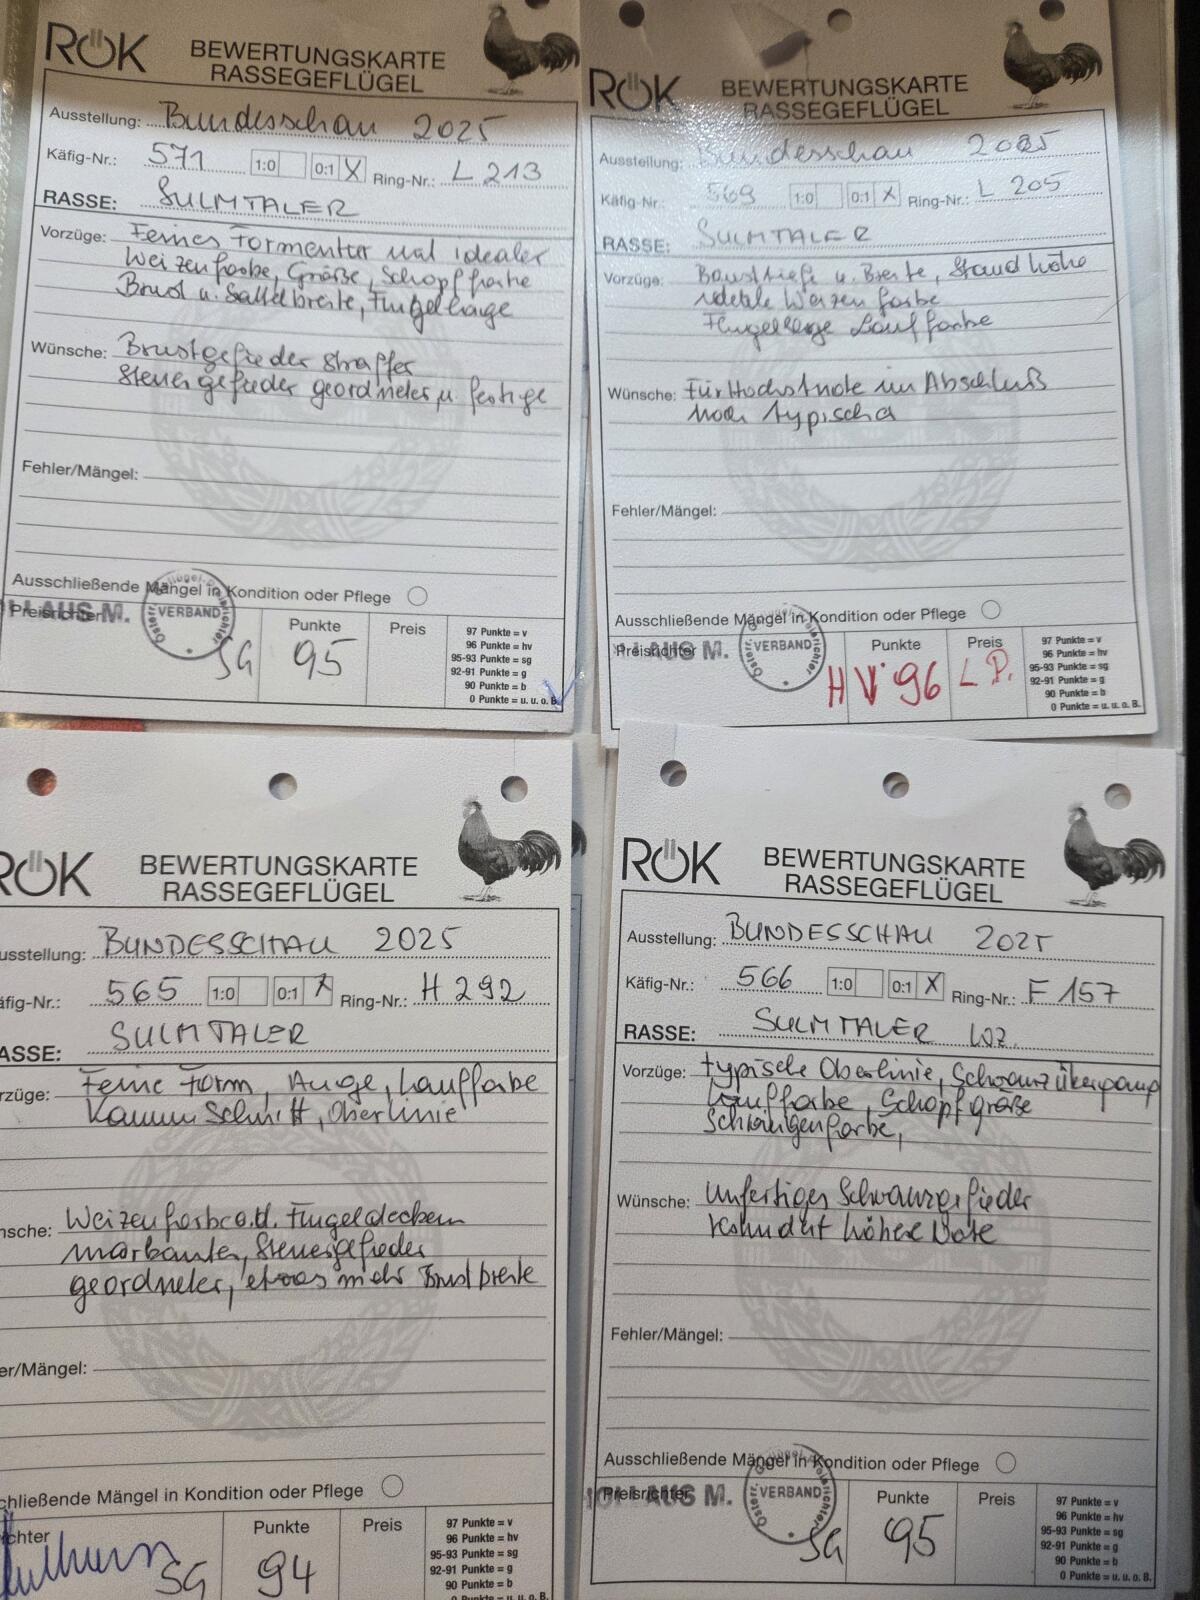 RÖK
BEWERTUNGSKARTE
RASSEGEFLÜGEL
Ausstellung: Bundesschau 2025
Käfig-Nr.: 571 1:0 0:1 X Ring-Nr.: L 213
RASSE: SULMTALER
Vorzüge: Feines Formentier mit idealer
Weizenfarbe, Größe, Schopf farbe
Brust u. Sattelbreite, Flügellage
Wünsche: Brustgefieder straffer
Steuergefieder geordneter u.
Fehler/Mängel:
Ausschließende Mängel in Kondition oder Pflege
Preisrichter AUS M. VERBAND
SG
Punkte 95
Preis
97 Punkte = v
96 Punkte = hv
95-93 Punkte = sg
92-91 Punkte = g
90 Punkte = b
0 Punkte = u. u. o. B.
RÖK
BEWERTUNGSKARTE
RASSEGEFLÜGEL
Ausstellung: Bundesschau 2025
Käfig-Nr.: 569 1:0 0:1 X Ring-Nr.: L 205
RASSE: SULMTALER
Vorzüge: Brusttiefe u. Breite, Standhöhe
Weizenfarbe
Flügellage Lauffarbe
Wünsche: Für Höchstnote im Abschluß
noch typischer
Fehler/Mängel:
Ausschließende Mängel in Kondition oder Pflege
Preisrichter AUS M. VERBAND
HV
Punkte 96
Preis L P.
97 Punkte = v
96 Punkte = hv
95-93 Punkte = sg
92-91 Punkte = g
90 Punkte = b
0 Punkte = u. u. o. B.
RÖK
BEWERTUNGSKARTE
RASSEGEFLÜGEL
usstellung: BUNDESSCHAU 2025
äfig-Nr.: 565 1:0 0:1 X Ring-Nr.: H 292
ASSE: SULMTALER
rzüge: Feine Form, Auge, Lauffarbe
Kamm Schnitt, Oberlinie
nsche: Weizenfarbe a.d. Flügeldecken
markanter, Steuergefieder
geordneter, etwas mehr Brustbreite
er/Mängel:
chließende Mängel in Kondition oder Pflege
chter
SG
Punkte 94
Preis
97 Punkte = v
96 Punkte = hv
95-93 Punkte = sg
92-91 Punkte = g
90 Punkte = b
0 Punkte = u. u. o. B.
RÖK
BEWERTUNGSKARTE
RASSEGEFLÜGEL
Ausstellung: BUNDESSCHAU 2025
Käfig-Nr.: 566 1:0 0:1 X Ring-Nr.: F 157
RASSE: SULMTALER WZ.
Vorzüge: typische Oberlinie, Schwanzübergang
Lauffarbe, Schopfgröße
Schwingenfarbe,
Wünsche: Unfertiges Schwanzgefieder
höhere Note
Fehler/Mängel:
Ausschließende Mängel in Kondition oder Pflege
Preisrichter AUS M. VERBAND
SG
Punkte 95
Preis
97 Punkte = v
96 Punkte = hv
95-93 Punkte = sg
92-91 Punkte = g
90 Punkte = b
0 Punkte = u. u. o. B.